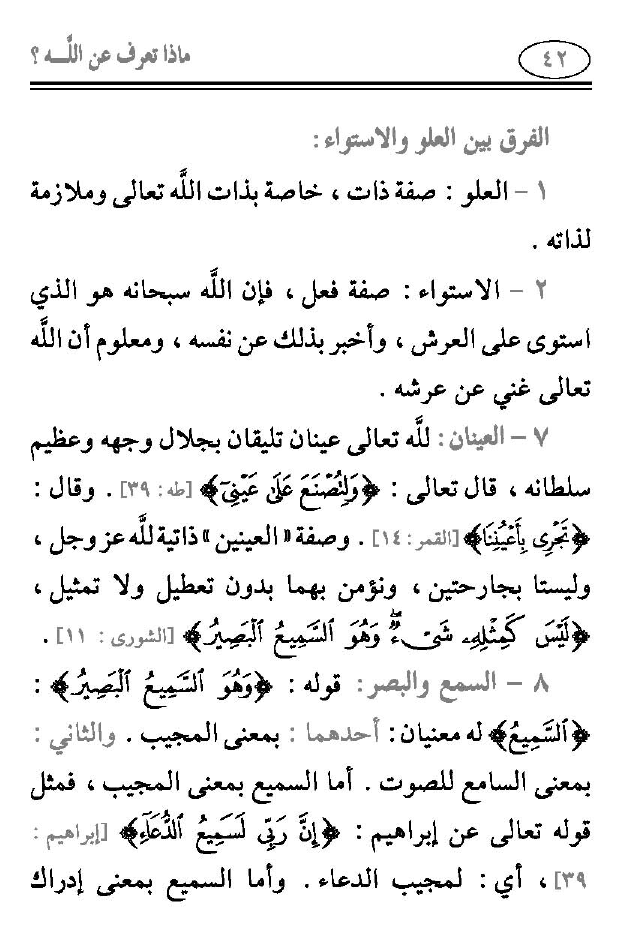 ٤٢
ماذا تعرف عن اللَّـه ؟
الفرق بين العلو والاستواء :
١ - العلو : صفة ذات ، خاصة بذات اللَّه تعالى وملازمة
لذاته .
٢ - الاستواء : صفة فعل ، فإن اللَّه سبحانه هو الذي
استوى على العرش ، وأخبر بذلك عن نفسه ، ومعلوم أن اللَّه
تعالى غني عن عرشه .
٧ - العينان : للَّه تعالى عينان تليقان بجلال وجهه وعظيم
سلطانه ، قال تعالى : ﴿وَلِتُصۡنَعَ عَلَىٰ عَيۡنِيٓ﴾ [طه : ٣٩] . وقال :
﴿تَجۡرِي بِأَعۡيُنِنَا﴾ [القمر : ١٤] . وصفة «العينين» ذاتية للَّه عز وجل ،
وليستا بجارحتين ، ونؤمن بهما بدون تعطيل ولا تمثيل ،
﴿لَيۡسَ كَمِثۡلِهِۦ شَيۡءٞۖ وَهُوَ ٱلسَّمِيعُ ٱلۡبَصِيرُ﴾ [الشورى : ١١] .
٨ - السمع والبصر : قوله : ﴿وَهُوَ ٱلسَّمِيعُ ٱلۡبَصِيرُ﴾ :
﴿ٱلسَّمِيعُ﴾ له معنيان : أحدهما : بمعنى المجيب . والثاني :
بمعنى السامع للصوت . أما السميع بمعنى المجيب ، فمثل
قوله تعالى عن إبراهيم : ﴿إِنَّ رَبِّي لَسَمِيعُ ٱلدُّعَآءِ﴾ [إبراهيم :
٣٩] ، أي : لمجيب الدعاء . وأما السميع بمعنى إدراك